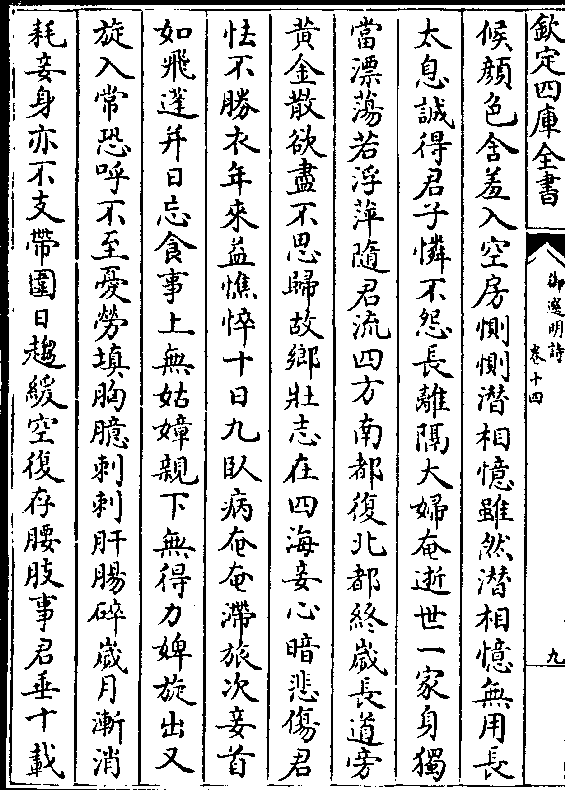 欽定四庫全書
御選明詩
卷十四
九
候顔色含羞入空房惻惻潜相憶雖然潜相憶無用長
太息誠得君子憐不怨長離隔大婦奄逝世一家身獨
當漂蕩若浮萍隨君流四方南都復北都終歲長道旁
黃金散欲盡不思歸故鄉壯志在四海妾心暗悲傷君
怯不勝衣年來益憔悴十日九臥病奄奄滯旅次妾首
如飛蓬并日忘食事上無姑嫜親下無得力婢旋出又
旋入常恐呼不至憂勞填胸臆刺刺肝腸碎歲月漸消
耗妾身亦不支帶圍日趨緩空復存腰肢事君垂十載